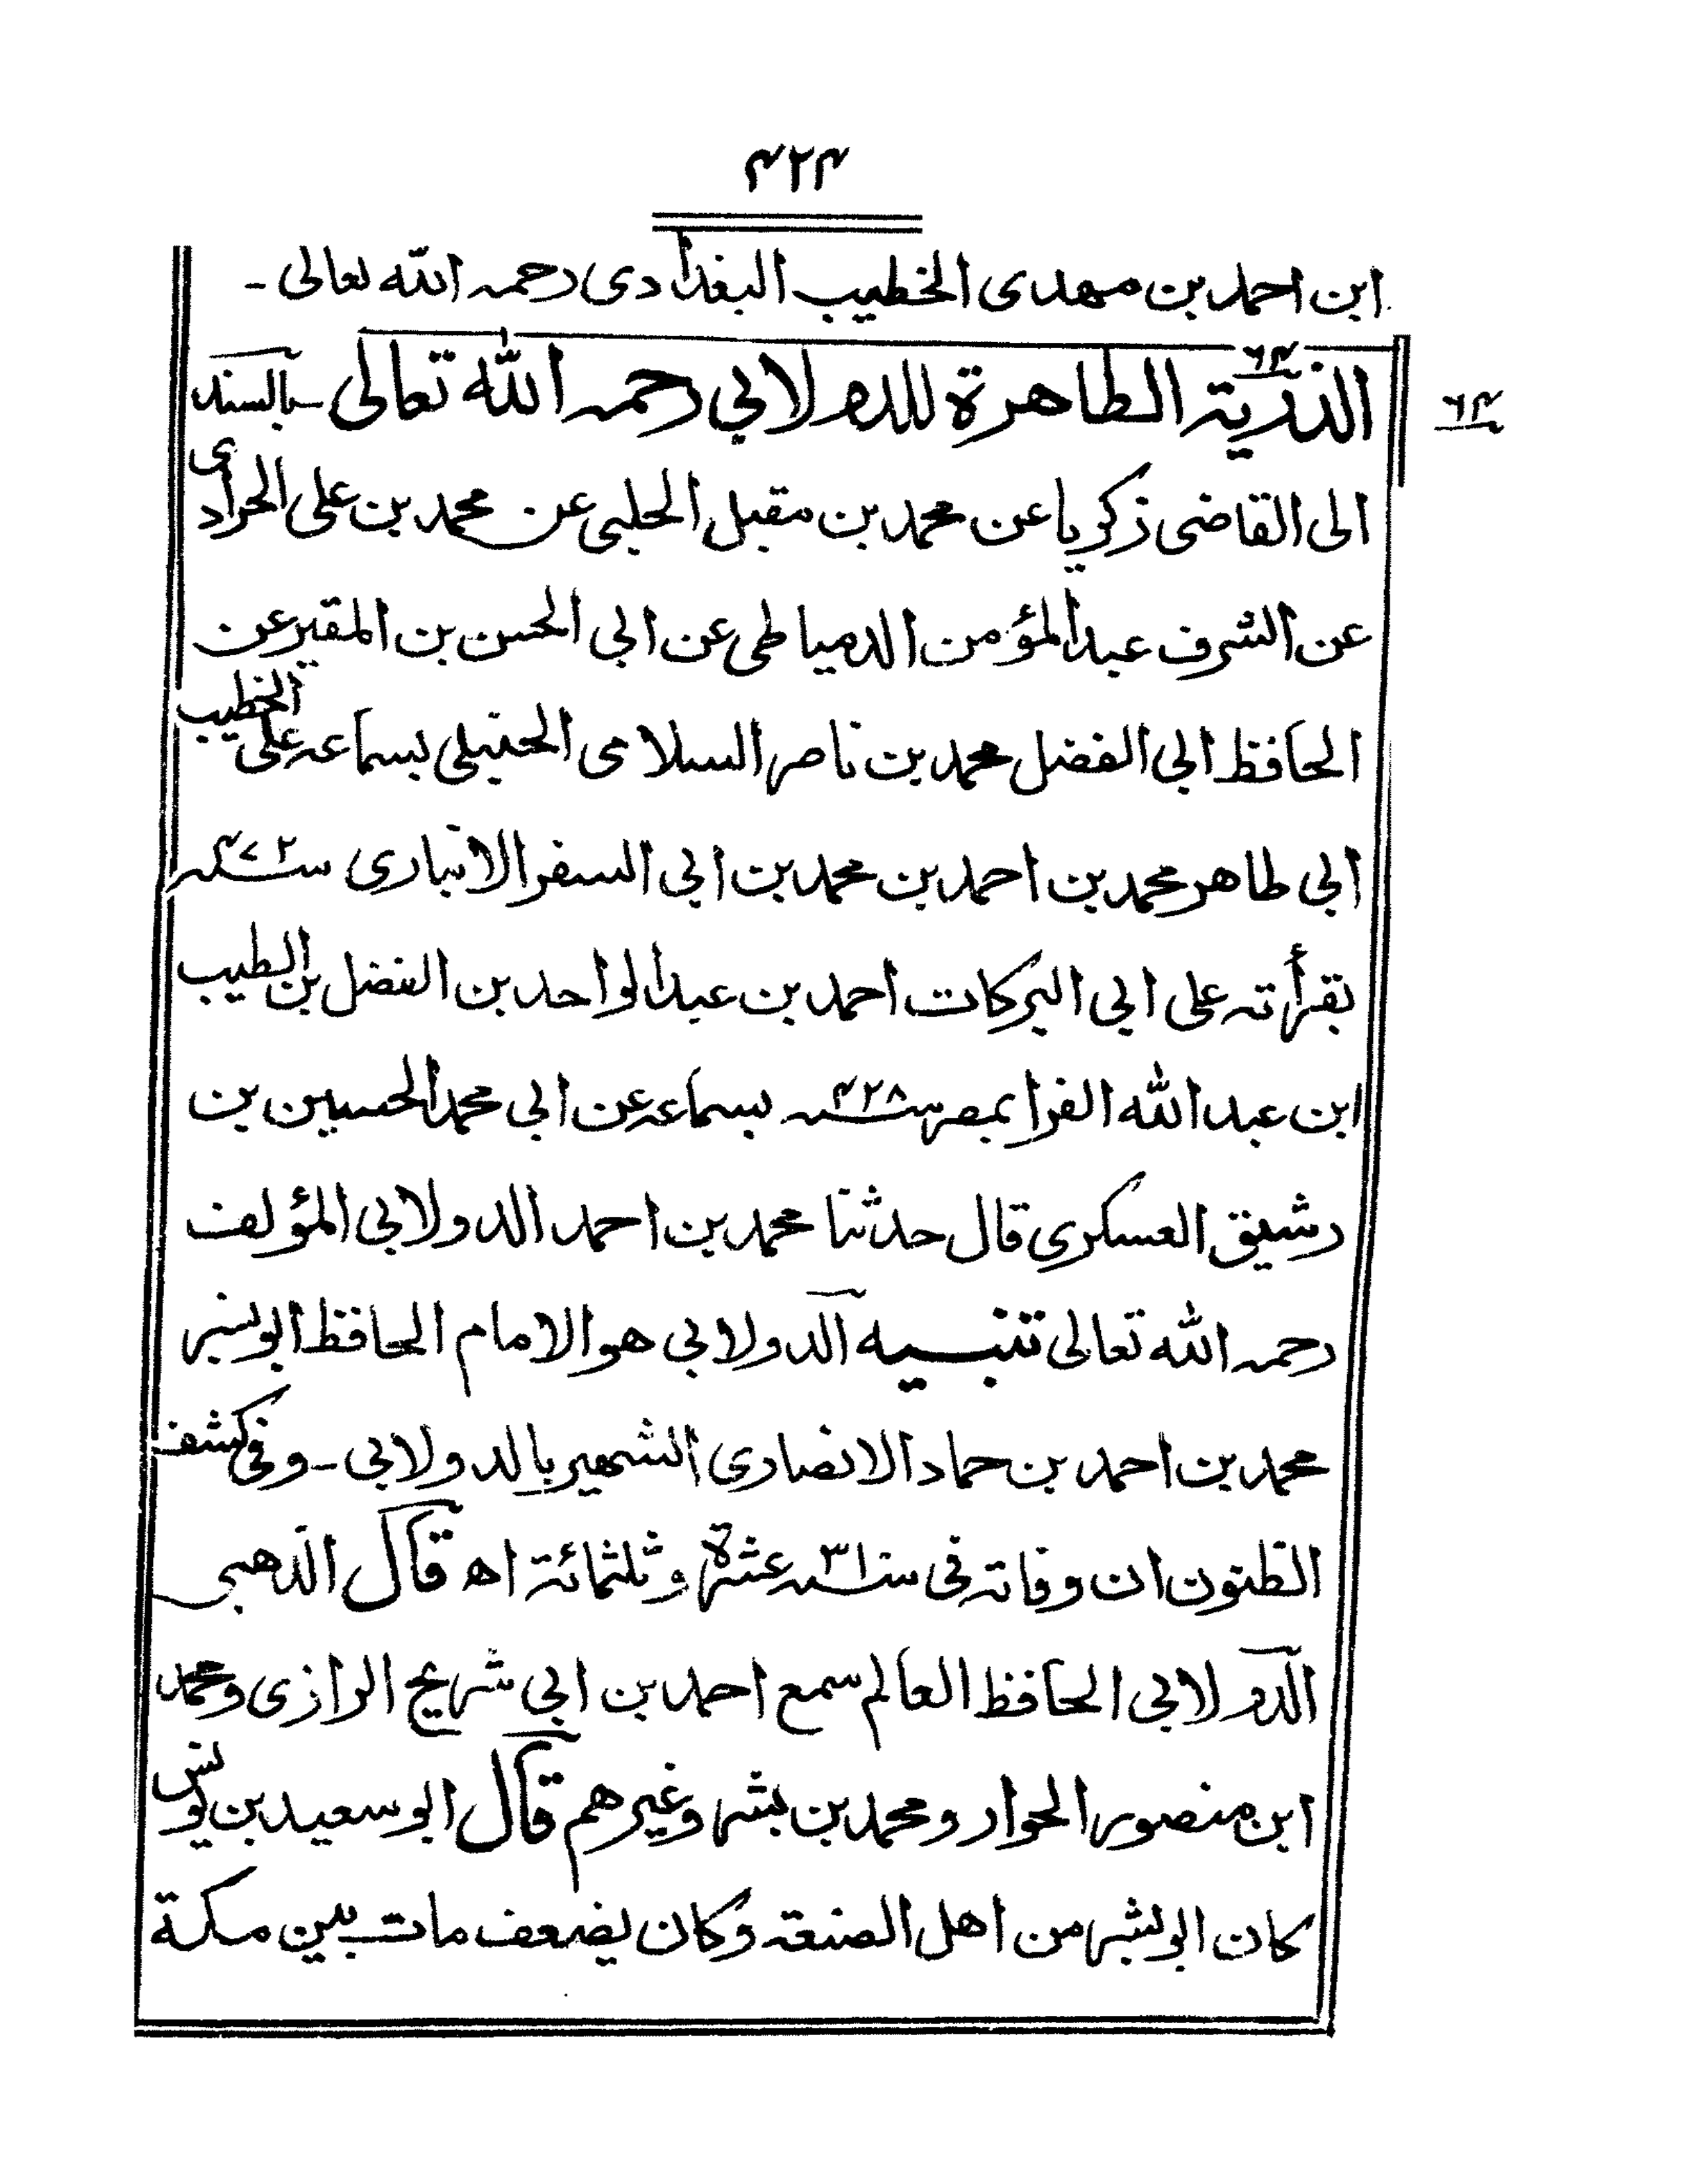 ۴۲۴
ابن احمد بن مهدى الخطيب البغدادى رحمه الله تعالى -
۶۴ الذرية الطاهرة للدولابي رحمه الله تعالى - بالسند
۶۴
الى القاضى زكريا عن محمد بن مقبل الحلبى عن محمد بن على الحراوى
عن الشرف عبد المؤمن الدمياطى عن ابي الحسن بن المقير عن
الحافظ ابي الفضل محمد بن ناصر السلامى الحنبلى بسماعه على الخطيب
ابي طاهر محمد بن احمد بن محمد بن ابي السفر الانبارى سنه ۴۷۲
بقرأته على ابي البركات احمد بن عبد الواحد بن الفضل بن الطيب
ابن عبد الله الفرا بمصر سنه ۴۲۸ بسماعه عن ابي محمد الحسين بن
رشيق العسكرى قال حدثنا محمد بن احمد الدولابي المؤلف
رحمه الله تعالى تنبيه الدولابي هو الامام الحافظ ابو بشر
محمد بن احمد بن حماد الانصارى الشهير بالدولابي - وفى كشف
الظنون ان وفاته فى سنه ۳۱ عشرة وثلثمائة اه قال الذهبى
الدولابي الحافظ العالم سمع احمد بن ابي شريح الرازى ومحمد
ابن منصور الحوار ومحمد بن بشر وغيرهم قال ابو سعيد بن يونس
كان ابو بشر من اهل الصنعه وكان يضعف مات بين مكة